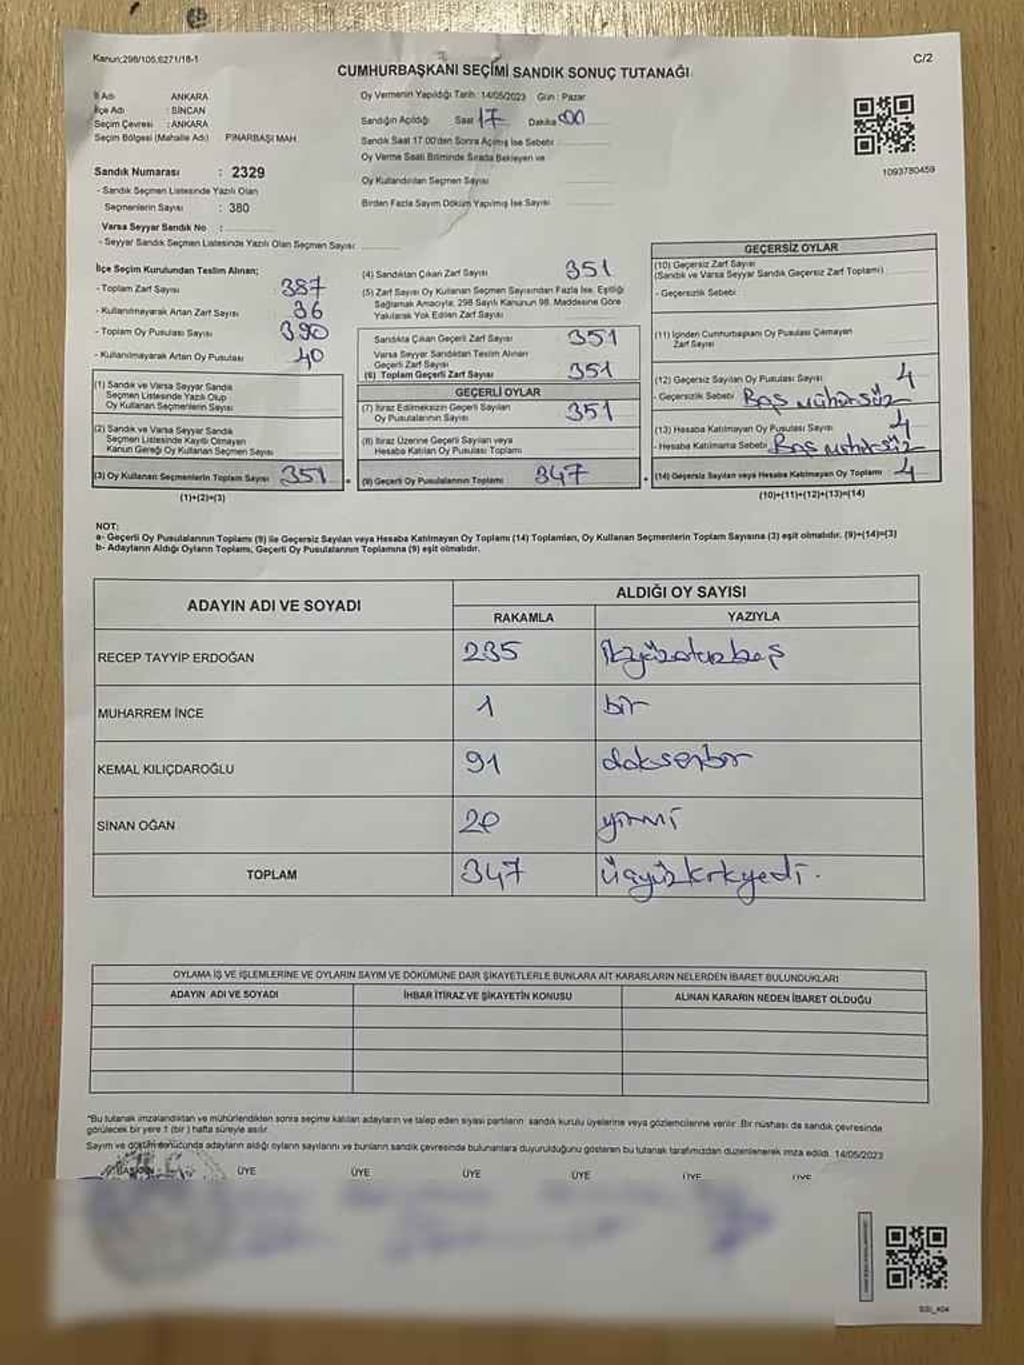 Kanun:298/105,6271/18-1
C/2
CUMHURBAŞKANI SEÇİMİ SANDIK SONUÇ TUTANAĞI
İl Adı ANKARA
İlçe Adı : SİNCAN
Seçim Çevresi : ANKARA
Seçim Bölgesi (Mahalle Adı) PINARBAŞI MAH.
Oy Vermenin Yapıldığı Tarih: 14/05/2023 Gün : Pazar
Sandığın Açıldığı Saat 17 Dakika 00
Sandık Saat 17.00'den Sonra Açılmış İse Sebebi
Oy Verme Saati Bitiminde Sırada Bekleyen ve
Oy Kullandırılan Seçmen Sayısı
Birden Fazla Sayım Döküm Yapılmış İse Sayısı
1093780459
Sandık Numarası : 2329
- Sandık Seçmen Listesinde Yazılı Olan
Seçmenlerin Sayısı : 380
Varsa Seyyar Sandık No :
- Seyyar Sandık Seçmen Listesinde Yazılı Olan Seçmen Sayısı
İlçe Seçim Kurulundan Teslim Alınan;
- Toplam Zarf Sayısı 387
- Kullanılmayarak Artan Zarf Sayısı 36
- Toplam Oy Pusulası Sayısı 390
- Kullanılmayarak Artan Oy Pusulası 40
(1) Sandık ve Varsa Seyyar Sandık
Seçmen Listesinde Yazılı Olup
Oy Kullanan Seçmenlerin Sayısı
(2) Sandık ve Varsa Seyyar Sandık
Seçmen Listesinde Kayıtlı Olmayan
Kanun Gereği Oy Kullanan Seçmen Sayısı
(3) Oy Kullanan Seçmenlerin Toplam Sayısı 351
(1)+(2)=(3)
(4) Sandıktan Çıkan Zarf Sayısı 351
(5) Zarf Sayısı Oy Kullanan Seçmen Sayısından Fazla İse, Eşitliği
Sağlamak Amacıyla; 298 Sayılı Kanunun 98. Maddesine Göre
Yakılarak Yok Edilen Zarf Sayısı
Sandıkta Çıkan Geçerli Zarf Sayısı 351
Varsa Seyyar Sandıktan Teslim Alınan
Geçerli Zarf Sayısı
(6) Toplam Geçerli Zarf Sayısı 351
GEÇERLİ OYLAR
(7) İtiraz Edilmeksizin Geçerli Sayılan
Oy Pusulalarının Sayısı 351
(8) İtiraz Üzerine Geçerli Sayılan veya
Hesaba Katılan Oy Pusulası Toplamı
(9) Geçerli Oy Pusulalarının Toplamı 347
GEÇERSİZ OYLAR
(10) Geçersiz Zarf Sayısı
(Sandık ve Varsa Seyyar Sandık Geçersiz Zarf Toplamı)
- Geçersizlik Sebebi
(11) İçinden Cumhurbaşkanı Oy Pusulası Çıkmayan
Zarf Sayısı
(12) Geçersiz Sayılan Oy Pusulası Sayısı 4
- Geçersizlik Sebebi Boş mühürsüz
(13) Hesaba Katılmayan Oy Pusulası Sayısı 4
- Hesaba Katılmama Sebebi Boş mühürsüz
(14) Geçersiz Sayılan veya Hesaba Katılmayan Oy Toplamı 4
(10)+(11)+(12)+(13)=(14)
NOT:
a- Geçerli Oy Pusulalarının Toplamı (9) ile Geçersiz Sayılan veya Hesaba Katılmayan Oy Toplamı (14) Toplamları, Oy Kullanan Seçmenlerin Toplam Sayısına (3) eşit olmalıdır. (9)+(14)=(3)
b- Adayların Aldığı Oyların Toplamı, Geçerli Oy Pusulalarının Toplamına (9) eşit olmalıdır.
ADAYIN ADI VE SOYADI
ALDIĞI OY SAYISI
RAKAMLA YAZIYLA
RECEP TAYYİP ERDOĞAN 235 İkiyüzotuzbeş
MUHARREM İNCE 1 bir
KEMAL KILIÇDAROĞLU 91 doksanbir
SİNAN OĞAN 20 yirmi
TOPLAM 347 üçyüzkırkyedi.
OYLAMA İŞ VE İŞLEMLERİNE VE OYLARIN SAYIM VE DÖKÜMÜNE DAİR ŞİKAYETLERLE BUNLARA AİT KARARLARIN NELERDEN İBARET BULUNDUKLARI
ADAYIN ADI VE SOYADI İHBAR İTİRAZ VE ŞİKAYETİN KONUSU ALINAN KARARIN NEDEN İBARET OLDUĞU
*Bu tutanak imzalandıktan ve mühürlendikten sonra seçime katılan adayların ve talep eden siyasi partilerin sandık kurulu üyelerine veya gözlemcilerine verilir. Bir nüshası da sandık çevresinde
görülecek bir yere 1 (bir) hafta süreyle asılır.
Sayım ve döküm sonucunda adayların aldığı oyların sayılarını ve bunların sandık çevresinde bulunanlara duyurulduğunu gösteren bu tutanak tarafımızdan düzenlenerek imza edildi. 14/05/2023
BAŞKAN ÜYE ÜYE ÜYE ÜYE ÜYE ÜYE